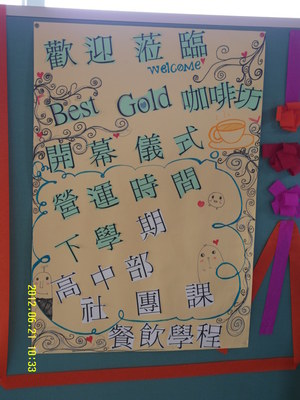 歡迎 蒞臨
welcome
Best Gold 咖啡坊
開幕儀式
營運時間
下學期
高中部
社團課
餐飲學程
2012.06.21 10:33